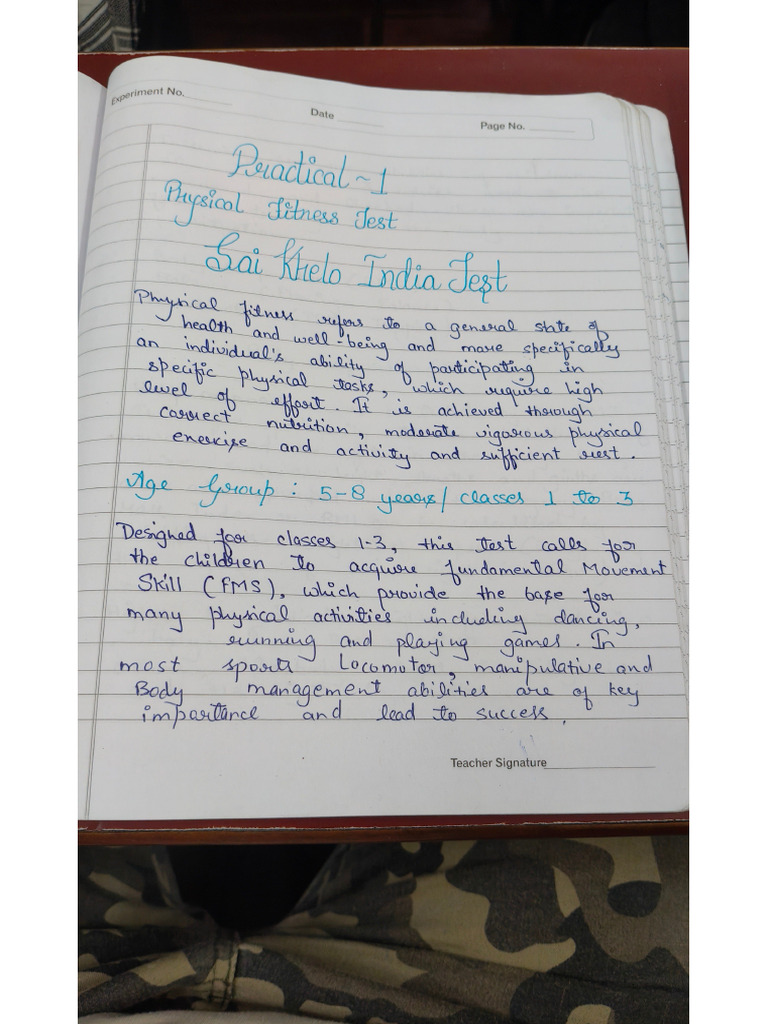 Experiment No.
Date
Page No.
Practical ~ 1
Physical Fitness Test
Sai Khelo India Test
Physical fitness refers to a general state of
health and well-being and more specifically
an individual's ability of participating in
specific physical tasks, which require high
level of effort. It is achieved thorough
correct nutrition, moderate vigorous physical
exercise and activity and sufficient rest.
Age Group : 5-8 years/ classes 1 to 3
Designed for classes 1-3, this test calls for
the children to acquire fundamental Movement
Skill (FMS), which provide the base for
many physical activities including dancing,
running and playing games. In
most sports Locomotor, manipulative and
Body management abilities are of key
importance and lead to success.
Teacher Signature